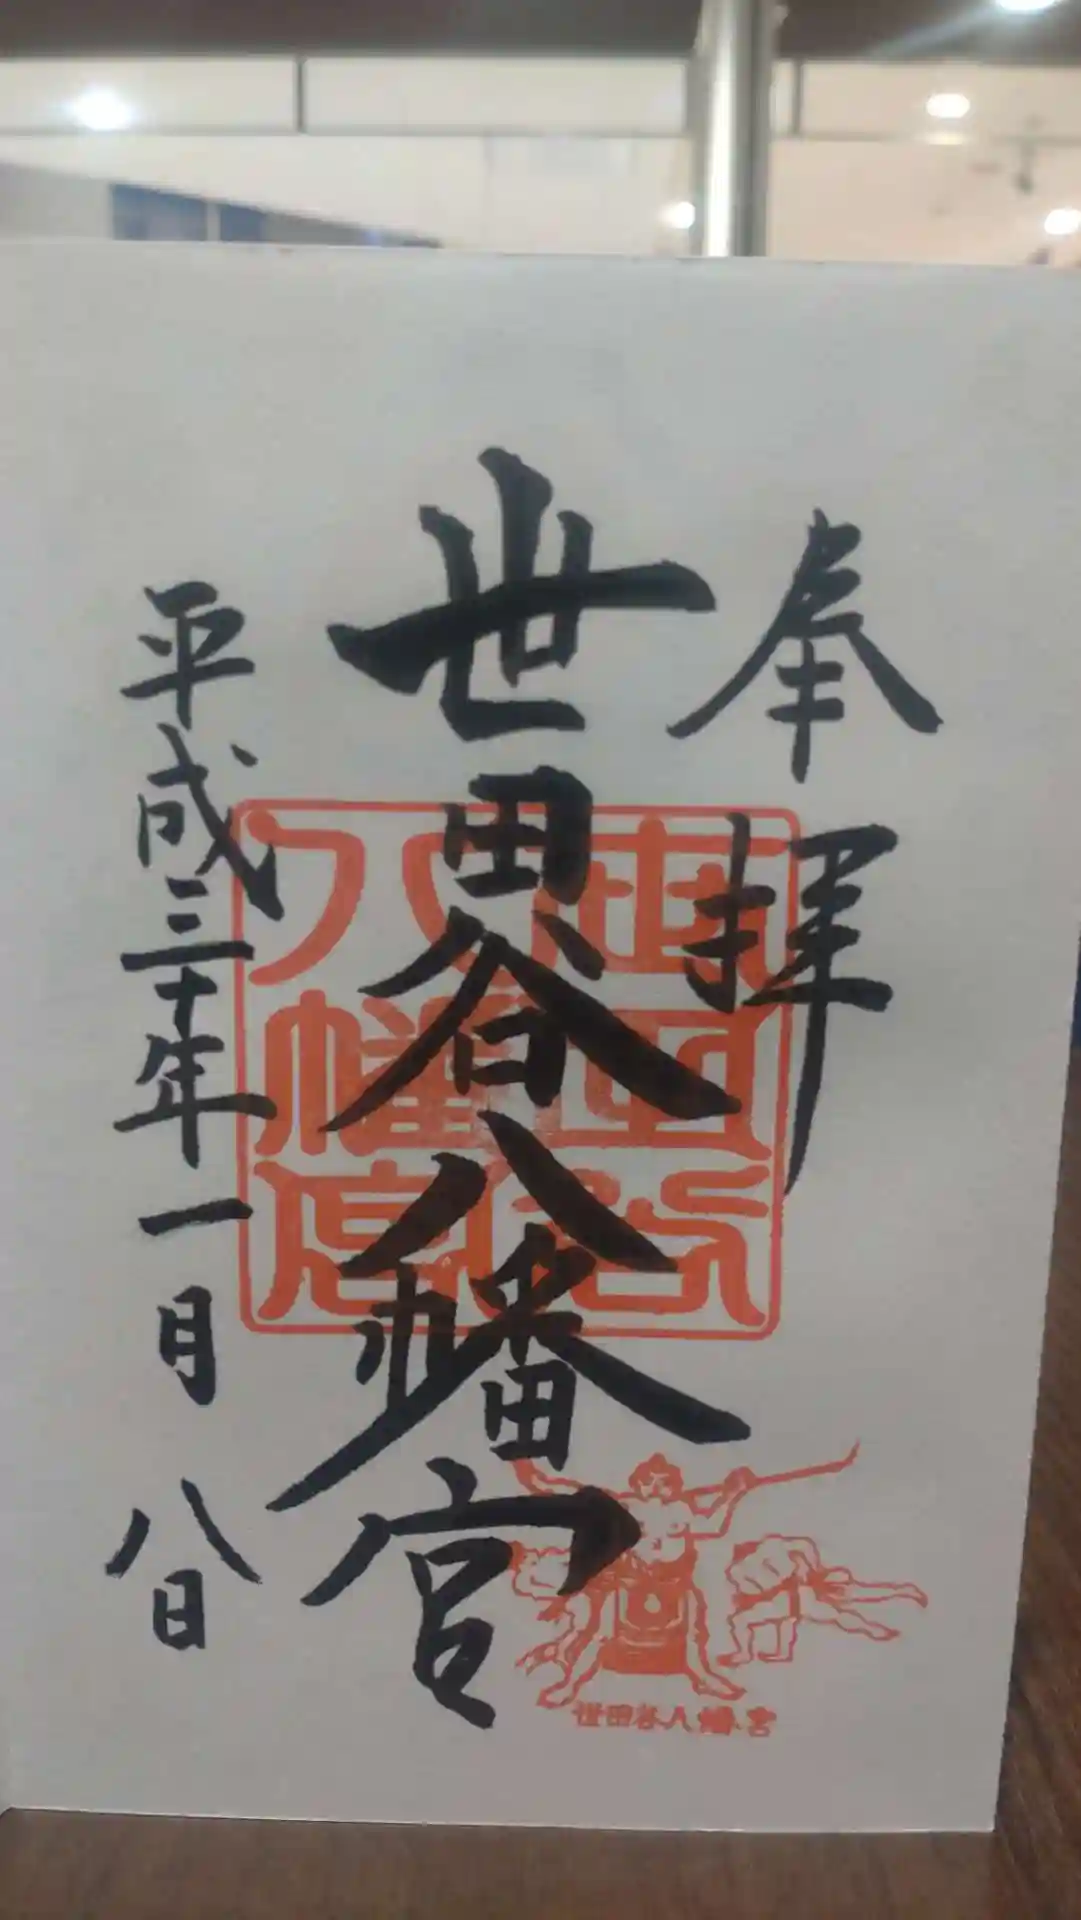 奉拝
世田谷八幡宮
平成三十年一月八日
世田谷
八幡宮
世田谷八幡宮